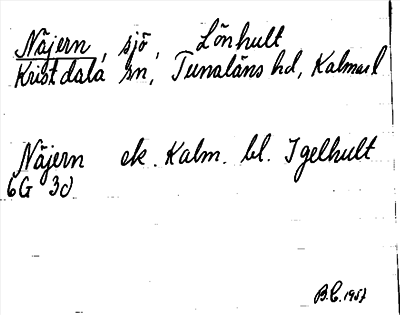 Näjern, sjö, Lönhult
Kristdala sn, Tunaläns hd, Kalmar l
Näjern ek. Kalm. bl. Igelhult
6G 3d
B.C. 1957